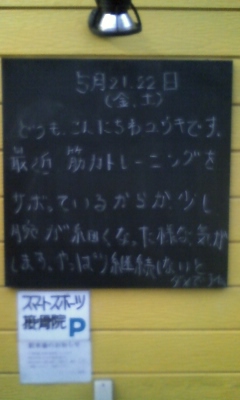 5月21.22日
(金、土)
どうも、こんにちわユウキです。
最近 筋力トレーニングを
サボっているからか、少し
腕が細くなった様な気が
します。やっぱり継続しないと
スマートスポーツ
接骨院 P